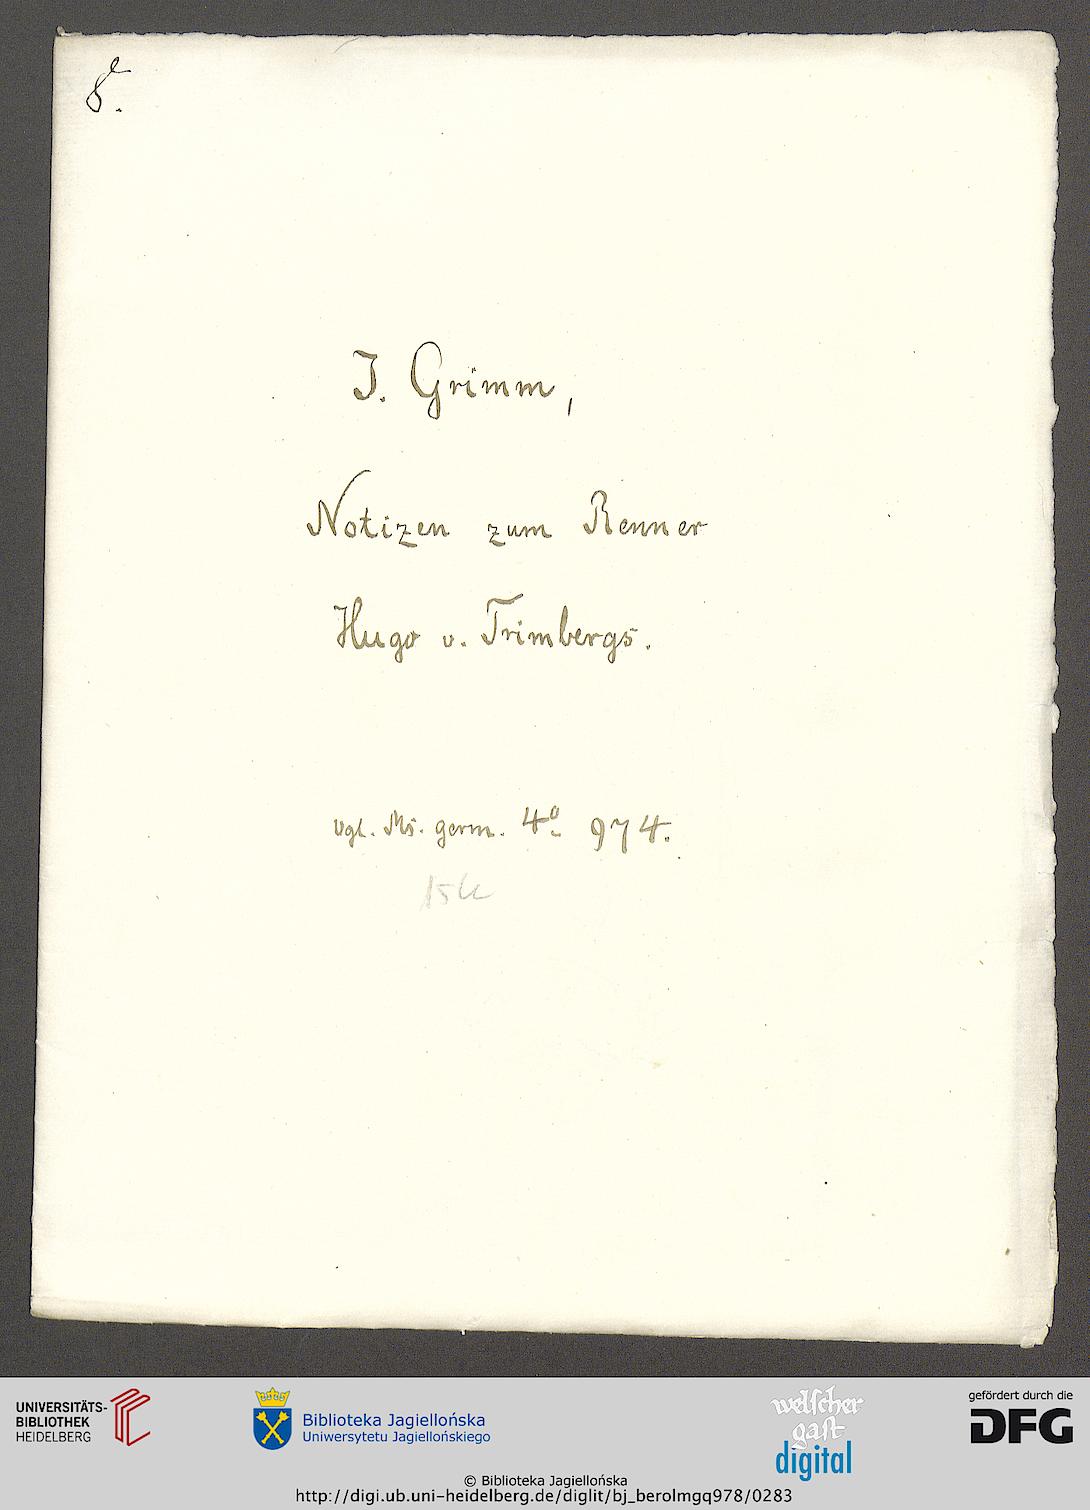 8.
J. Grimm,
Notizen zum Renner
Hugo v. Trimbergs.
Vgl. Ms. germ. 4º 974.
UNIVERSITÄTS-
BIBLIOTHEK
HEIDELBERG
Biblioteka Jagiellońska
Uniwersytetu Jagiellońskiego
welscher
gast
digital
gefördert durch die
DFG
© Biblioteka Jagiellońska
http://digi.ub.uni-heidelberg.de/diglit/bj_berolmgq978/0283